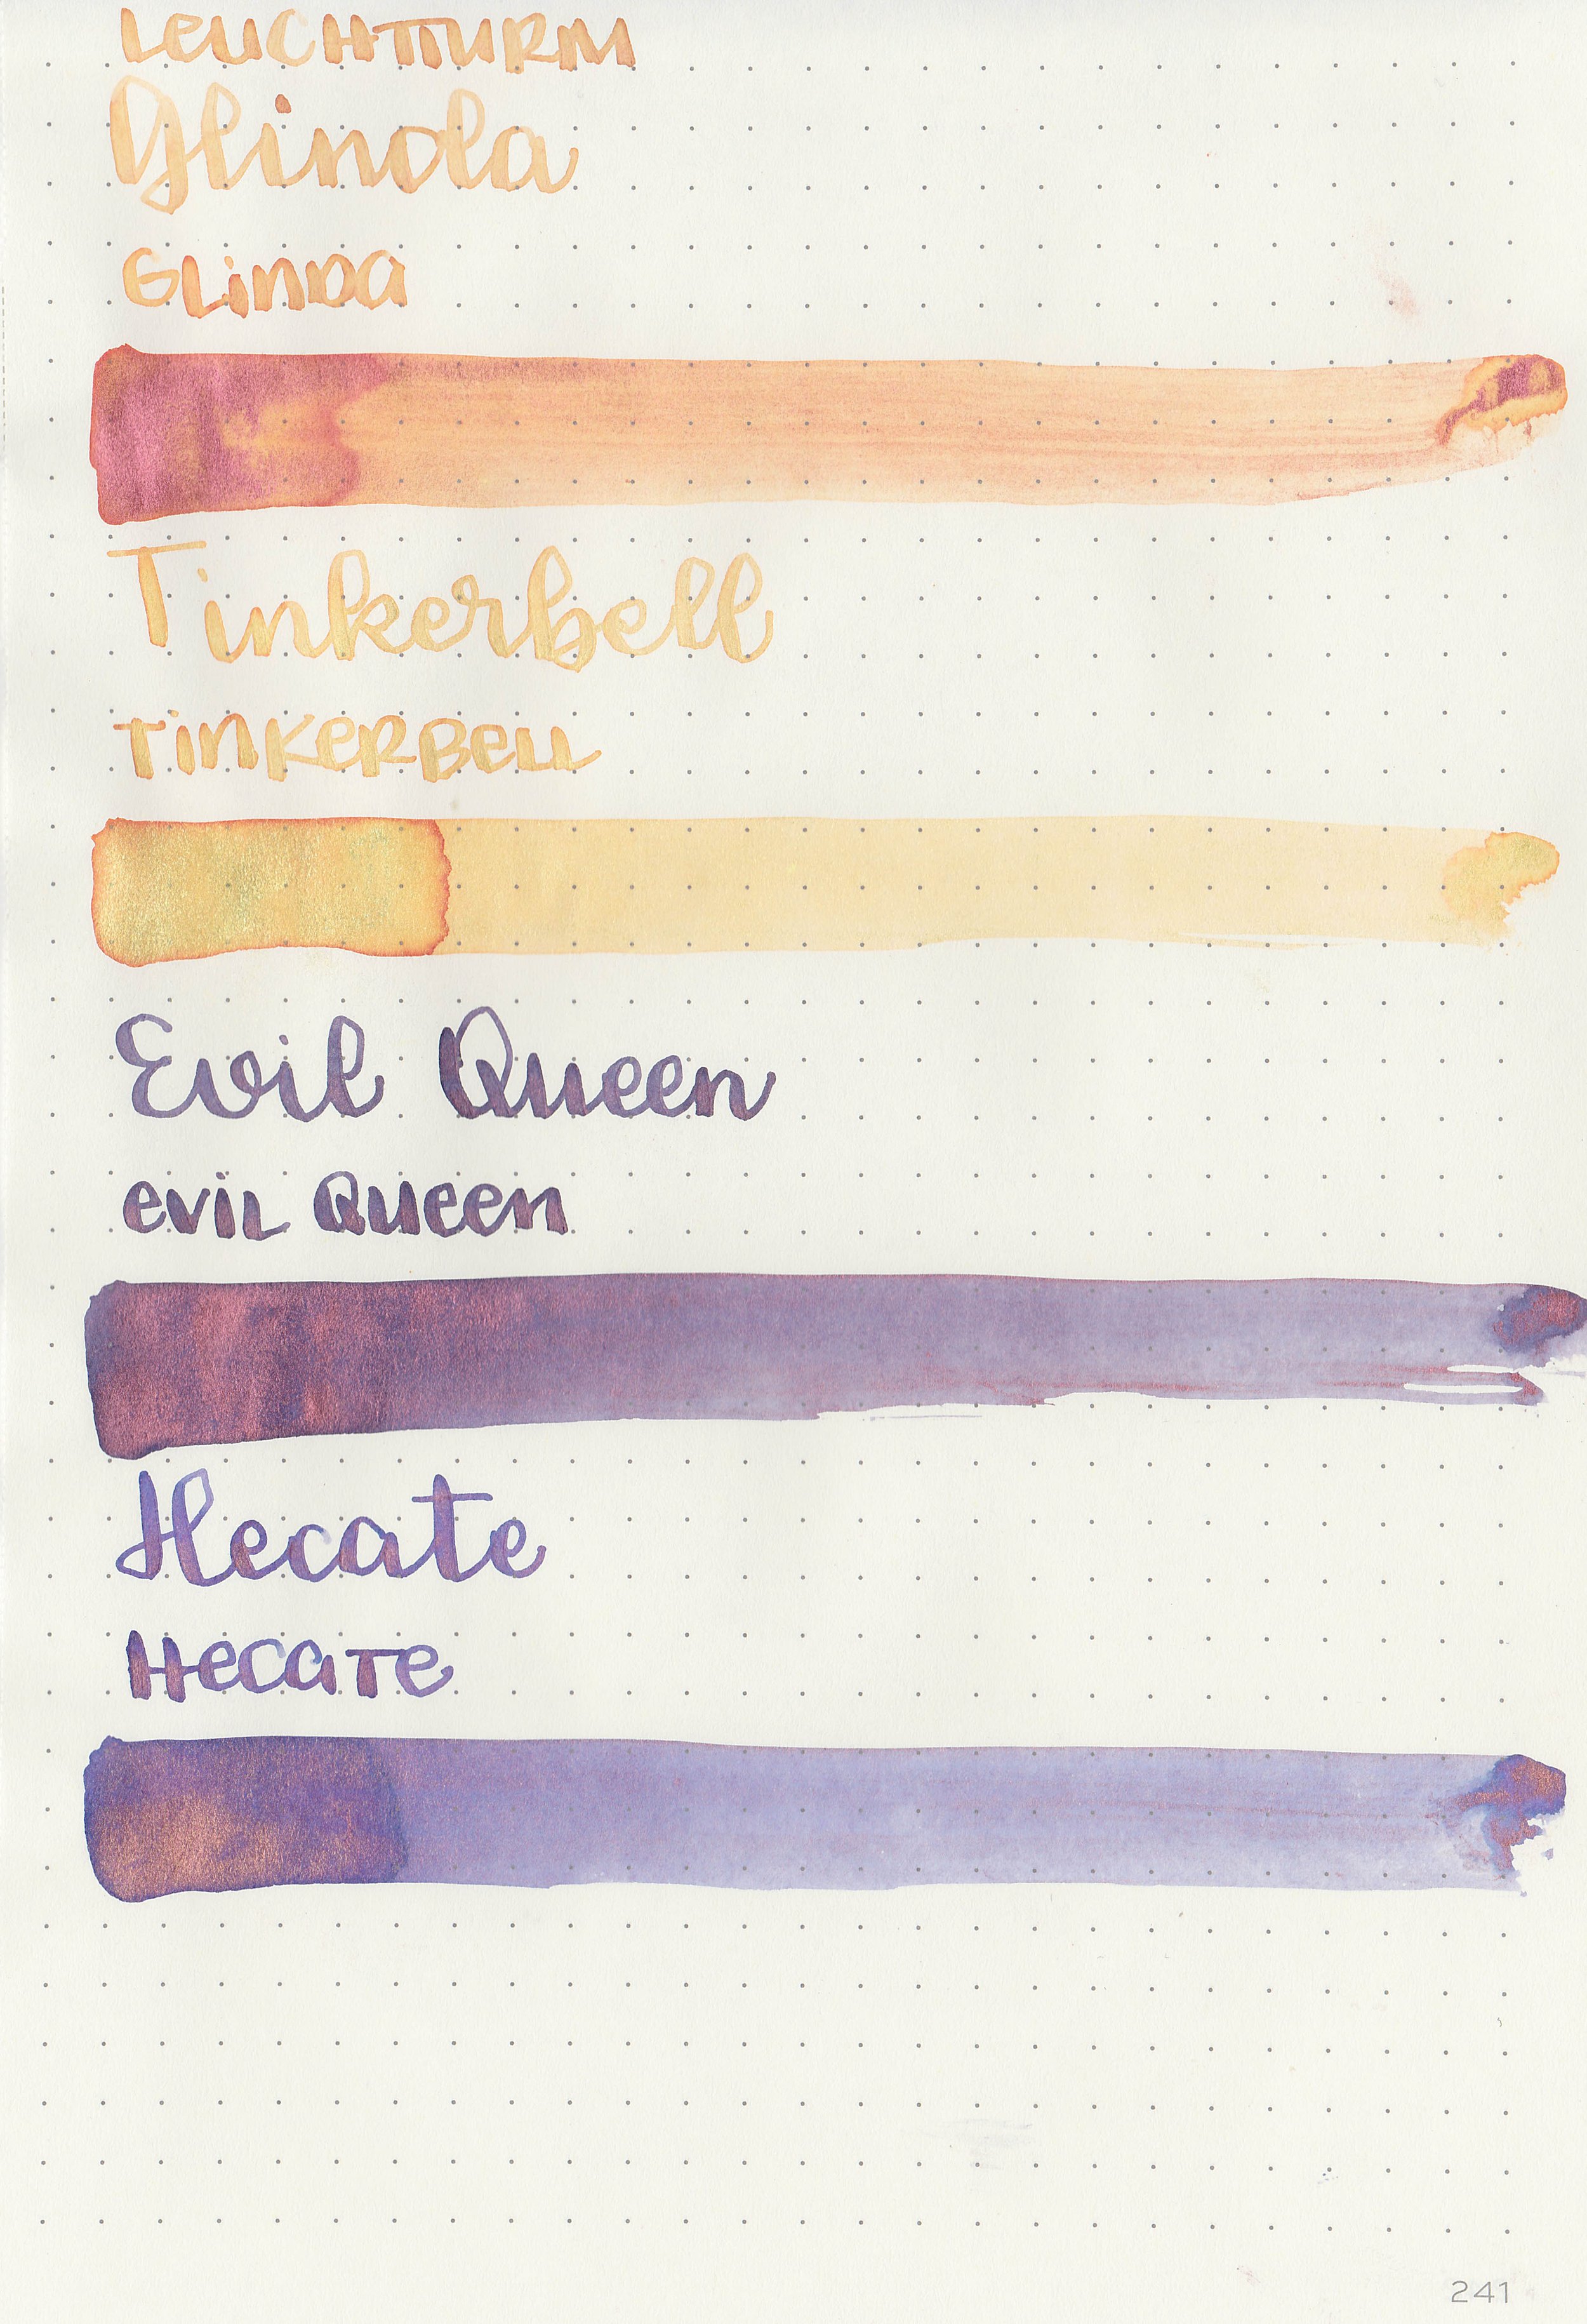 LEUCHTTURM
Glinda
GLINDA
Tinkerbell
TINKERBELL
Evil Queen
EVIL QUEEN
Hecate
HECATE
241